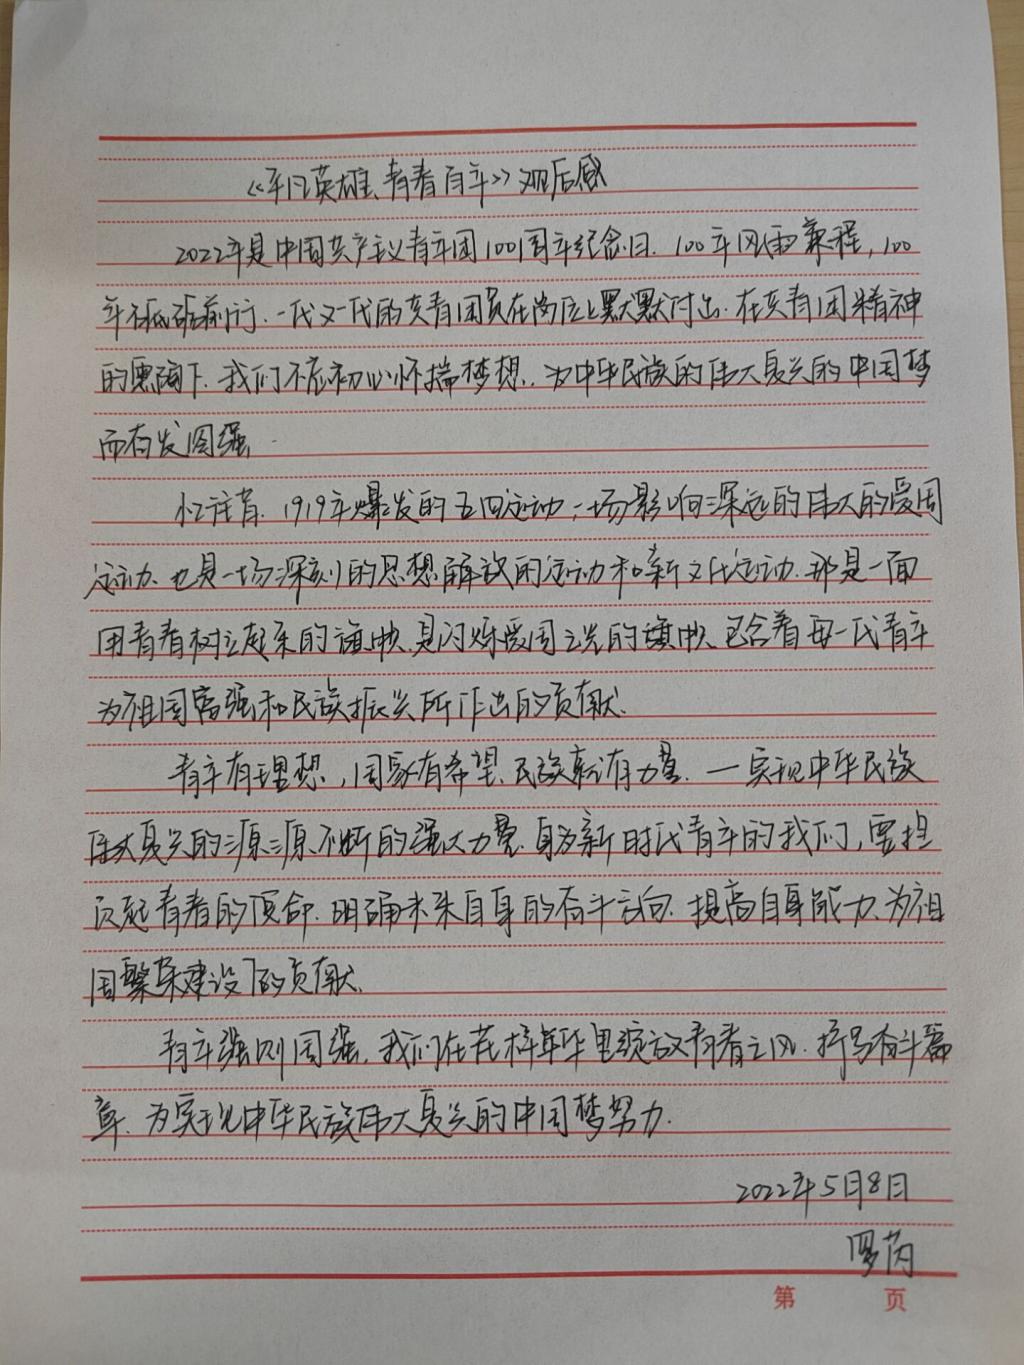 《平凡英雄、青春百年》观后感
2022年是中国共产主义青年团100周年纪念日.100年风雨兼程,100
年砥砺前行.一代又一代的共青团员在岗位上默默付出.在共青团精神
的熏陶下.我们不忘初心怀揣梦想.为中华民族的伟大复兴的中国梦
而奋发图强.
忆往昔.1919年爆发的五四运动,一场影响深远的伟大的爱国
运动.也是一场深刻的思想解放的运动和新文化运动.那是一面
用青春树立起来的旗帜.是闪烁爱国之光的旗帜.包含着每一代青年
为祖国富强和民族振兴所作出的贡献.
青年有理想,国家有希望.民族就有力量.一实现中华民族
伟大复兴的源源不断的强大力量.身为新时代青年的我们,要担
负起青春的使命.明确未来自身的奋斗方向.提高自身能力.为祖
国繁荣建设下的贡献.
青年强则国强.我们在花样年华里绽放青春之风.抒写奋斗篇
章.为实现中华民族伟大复兴的中国梦努力.
2022年5月8日
罗芮
第 页